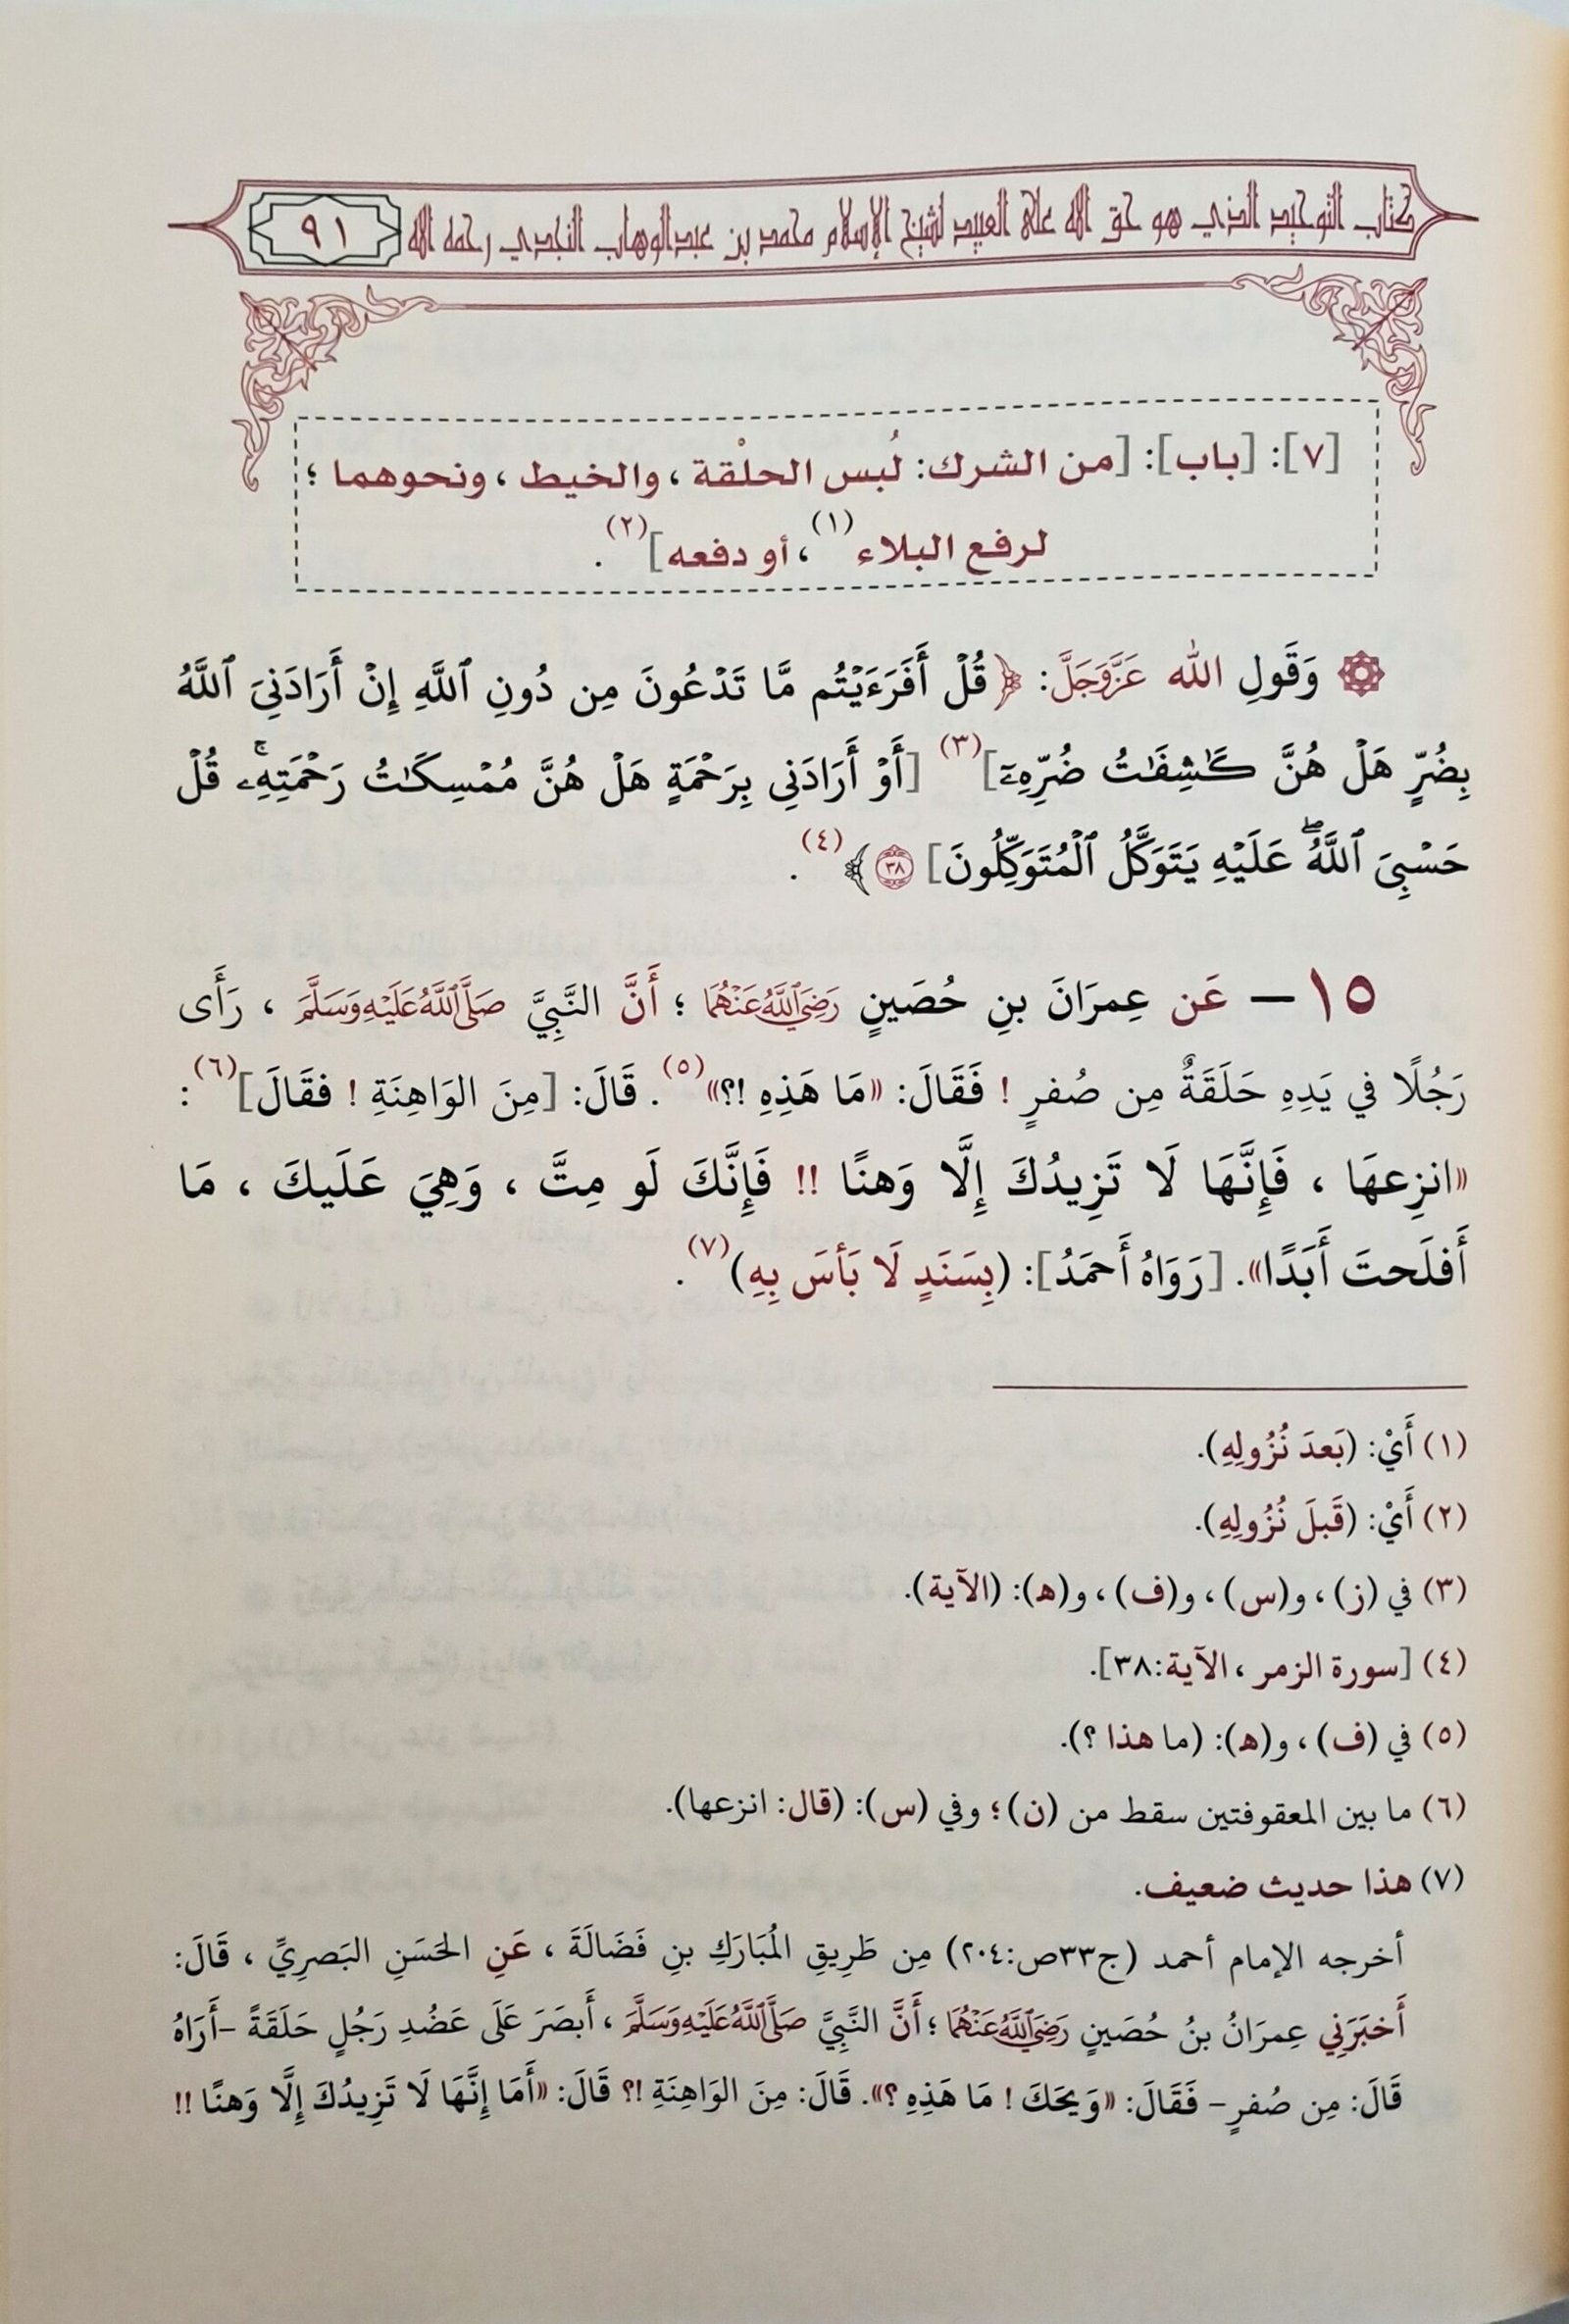 كتاب التوحيد الذي هو حق الله على العبيد لشيخ الإسلام محمد بن عبدالوهاب النجدي رحمه الله ٩١
[٧]: [باب]: [من الشرك: لُبس الحلْقة ، والخيط ، ونحوهما ؛
لرفع البلاء(١)، أو دفعه](٢).
وَقَولِ الله عَزَّوَجَلَّ: ﴿قُلۡ أَفَرَءَيۡتُم مَّا تَدۡعُونَ مِن دُونِ ٱللَّهِ إِنۡ أَرَادَنِيَ ٱللَّهُ
بِضُرٍّ هَلۡ هُنَّ كَٰشِفَٰتُ ضُرِّهِۦٓ](٣) [أَوۡ أَرَادَنِي بِرَحۡمَةٍ هَلۡ هُنَّ مُمۡسِكَٰتُ رَحۡمَتِهِۦۚ قُلۡ
حَسۡبِيَ ٱللَّهُۖ عَلَيۡهِ يَتَوَكَّلُ ٱلۡمُتَوَكِّلُونَ] ٣٨﴾(٤).
١٥ – عَن عِمرَانَ بنِ حُصَينٍ رَضِيَ ٱللَّهُ عَنۡهُمَا ؛ أَنَّ النَّبِيَّ صَلَّى ٱللَّهُ عَلَيۡهِ وَسَلَّمَ ، رَأَى
رَجُلًا في يَدِهِ حَلَقَةٌ مِن صُفرٍ ! فَقَالَ: «مَا هَذِهِ !؟»(٥). قَالَ: [مِنَ الوَاهِنَةِ ! فقَالَ](٦):
«انزِعهَا ، فَإِنَّهَا لَا تَزِيدُكَ إِلَّا وَهنًا !! فَإِنَّكَ لَو مِتَّ ، وَهِيَ عَلَيكَ ، مَا
أَفلَحتَ أَبَدًا». [رَوَاهُ أَحمَدُ]: (بِسَنَدٍ لَا بَأسَ بِهِ)(٧).
(١) أَيْ: (بَعدَ نُزُولِهِ).
(٢) أَيْ: (قَبلَ نُزُولِهِ).
(٣) في (ز) ، و(س) ، و(ف) ، و(ﻫ): (الآية).
(٤) [سورة الزمر ، الآية:٣٨].
(٥) في (ف) ، و(ﻫ): (ما هذا ؟).
(٦) ما بين المعقوفتين سقط من (ن)؛ وفي (س): (قال: انزعها).
(٧) هذا حديث ضعيف.
أخرجه الإمام أحمد (ج٣٣ص:٢٠٤) مِن طَرِيقِ المُبَارَكِ بنِ فَضَالَةَ ، عَنِ الحَسَنِ البَصرِيِّ ، قَالَ:
أَخبَرَنِي عِمرَانُ بنُ حُصَينٍ رَضِيَ ٱللَّهُ عَنۡهُمَا ؛ أَنَّ النَّبِيَّ صَلَّى ٱللَّهُ عَلَيۡهِ وَسَلَّمَ ، أَبصَرَ عَلَى عَضُدِ رَجُلٍ حَلَقَةً –أَرَاهُ
قَالَ: مِن صُفرٍ– فَقَالَ: «وَيحَكَ ! مَا هَذِهِ ؟». قَالَ: مِنَ الوَاهِنَةِ !؟ قَالَ: «أَمَا إِنَّهَا لَا تَزِيدُكَ إِلَّا وَهنًا !!